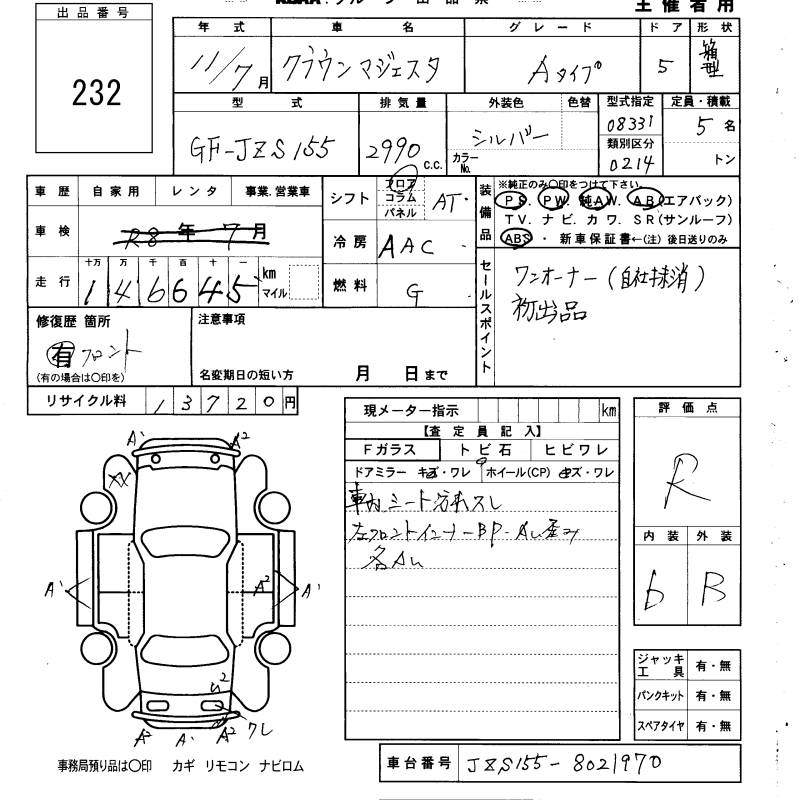 出品番号
232
主催者用
年式
車名
グレード
ドア
形状
11/7月
クラウンマジェスタ
Aタイプ
5
箱型
型式
排気量
外装色
色替
型式指定
定員・積載
GF-JZS155
2990 c.c.
シルバー
カラーNo.
08331
類別区分
0214
5名
トン
車歴
自家用
レンタ
事業.営業車
車検
R8年7月
走行
十万
万
千
百
十
一
146645
km
マイル
シフト
フロア
コラム
パネル
AT
冷房
AAC
燃料
G
装備品
※純正のみ○印をつけて下さい。
PS. PW. 純AW. AB(エアバック)
TV. ナビ. カワ. SR(サンルーフ)
ABS ・ 新車保証書←(注) 後日送りのみ
セールスポイント
ワンオーナー(自社抹消)
初出品
修復歴 箇所
有 フロント
(有の場合は○印を)
注意事項
名変期日の短い方
月 日まで
リサイクル料
13720円
現メーター指示
km
【査定員記入】
Fガラス
トビ石
ヒビワレ
ドアミラー キズ・ワレ
ホイール(CP) キズ・ワレ
左フロントインナーBP-
各AU
評価点
R
内装
外装
6
B
A1
A2
XX
A1
A2
A1
U2
ワレ
A2
A1
A2
ジャッキ工具
有・無
パンクキット
有・無
スペアタイヤ
有・無
事務局預り品は○印 カギ リモコン ナビロム
車台番号
JZS155-8021970